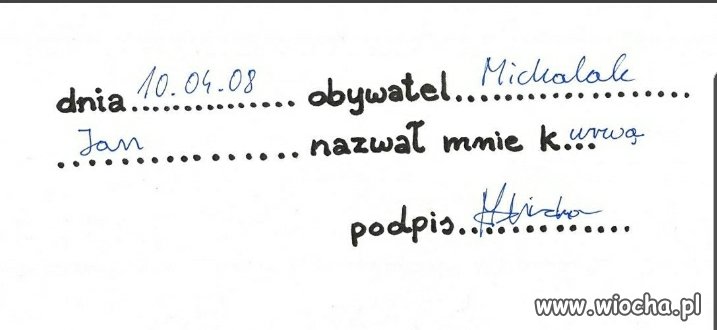 dnia 10.04.08 obywatel Michalak
Jan nazwał mnie kurwą
podpis
www.wiocha.pl